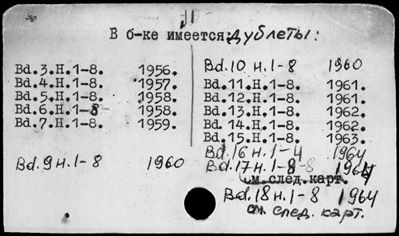 В б-ке имеется: дублеты:
Bd.3.H.1-8. 1956.
Bd.4.H.1-8. 1957.
Bd.5.H.1-8. 1958.
Bd.6.H.1-8 1958.
Bd.7.H.1-8. 1959.
Bd.9 H.1-8 1960
Bd.10 H.1-8 1960
Bd.11.H.1-8. 1961.
Bd.12.H.1-8. 1961.
Bd.13.H.1-8. 1962.
Bd.14.H.1-8. 1962.
Bd.15.H.1-8. 1963.
Bd.16 H.1-4 1964
Bd.17 H.1-8 1964
см.след.карт.
Bd.18 H.1-8 1964
см. след. карт.